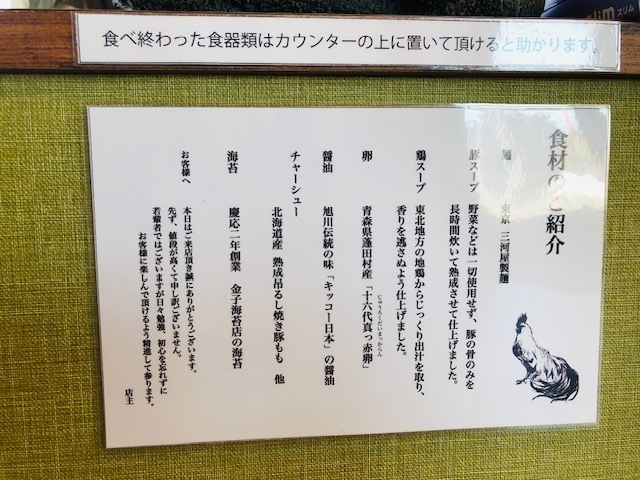 スリム
食べ終わった食器類はカウンターの上に置いて頂けると助かります。
食材のご紹介
麺 東京 三河屋製麺
豚スープ 野菜などは一切使用せず、豚の骨のみを
長時間炊いて熟成させて仕上げました。
鶏スープ 東北地方の地鶏からじっくり出汁を取り、
香りを逃さぬよう仕上げました。
卵 青森県蓬田村産「十六代真っ赤卵」
じゅうろくだいまっからん
醤油 旭川伝統の味「キッコー日本」の醤油
チャーシュー
北海道産 熟成吊るし焼き豚もも 他
海苔 慶応二年創業 金子海苔店の海苔
お客様へ 本日はご来店頂き誠にありがとうございます。
先ず、値段が高くて申し訳ございません。
若輩者ではございますが日々勉強、初心を忘れずに
お客様に楽しんで頂けるよう精進して参ります。
店主